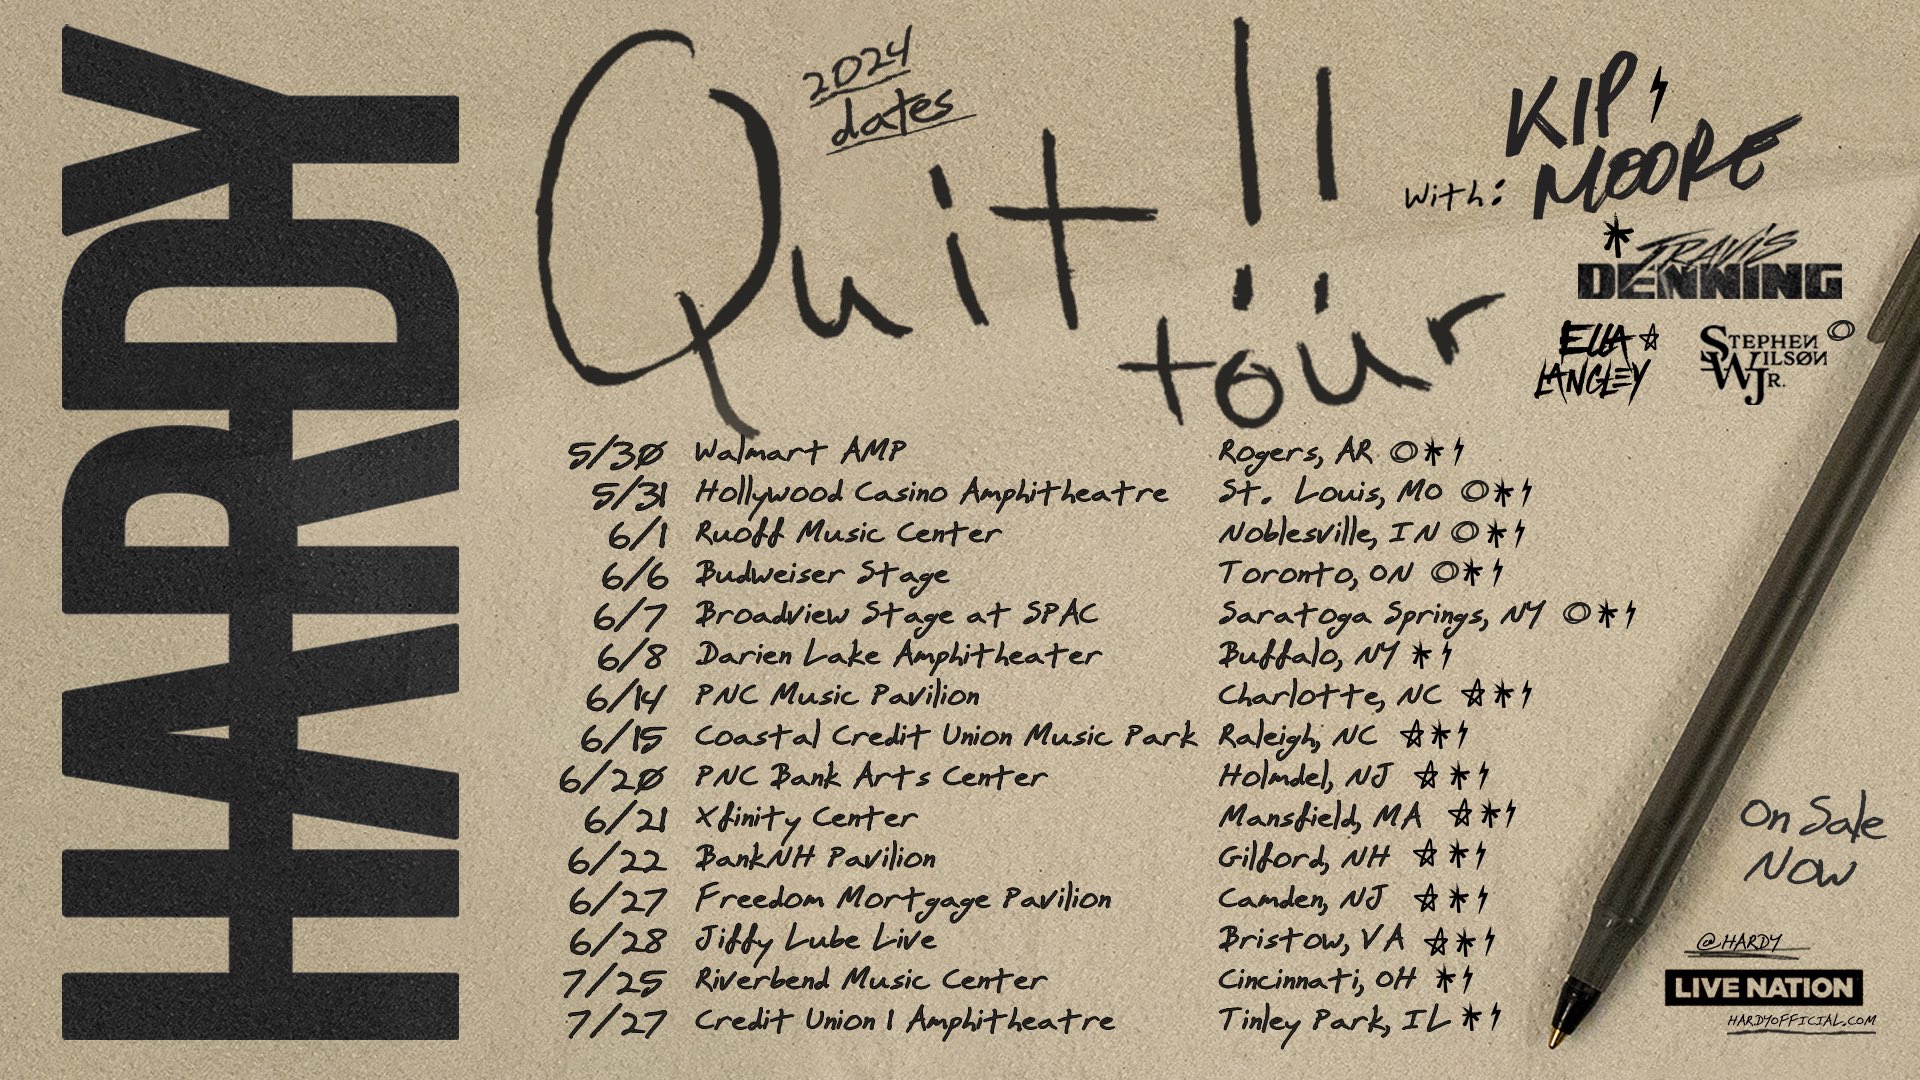 HARDY
2024
dates
Quit!!
tour
with: KIP
MOORE
TRAVIS
DENNING
ELLA
LANGLEY
STEPHEN
WILSØN
JR.
5/30 Walmart AMP Rogers, AR
5/31 Hollywood Casino Amphitheatre St. Louis, MO
6/1 Ruoff Music Center Noblesville, IN
6/6 Budweiser Stage Toronto, ON
6/7 Broadview Stage at SPAC Saratoga Springs, NY
6/8 Darien Lake Amphitheater Buffalo, NY
6/14 PNC Music Pavilion Charlotte, NC
6/15 Coastal Credit Union Music Park Raleigh, NC
6/20 PNC Bank Arts Center Holmdel, NJ
6/21 Xfinity Center Mansfield, MA
6/22 BankNH Pavilion Gilford, NH
6/27 Freedom Mortgage Pavilion Camden, NJ
6/28 Jiffy Lube Live Bristow, VA
7/25 Riverbend Music Center Cincinnati, OH
7/27 Credit Union 1 Amphitheatre Tinley Park, IL
On Sale
Now
@HARDY
LIVE NATION
HARDYOFFICIAL.COM